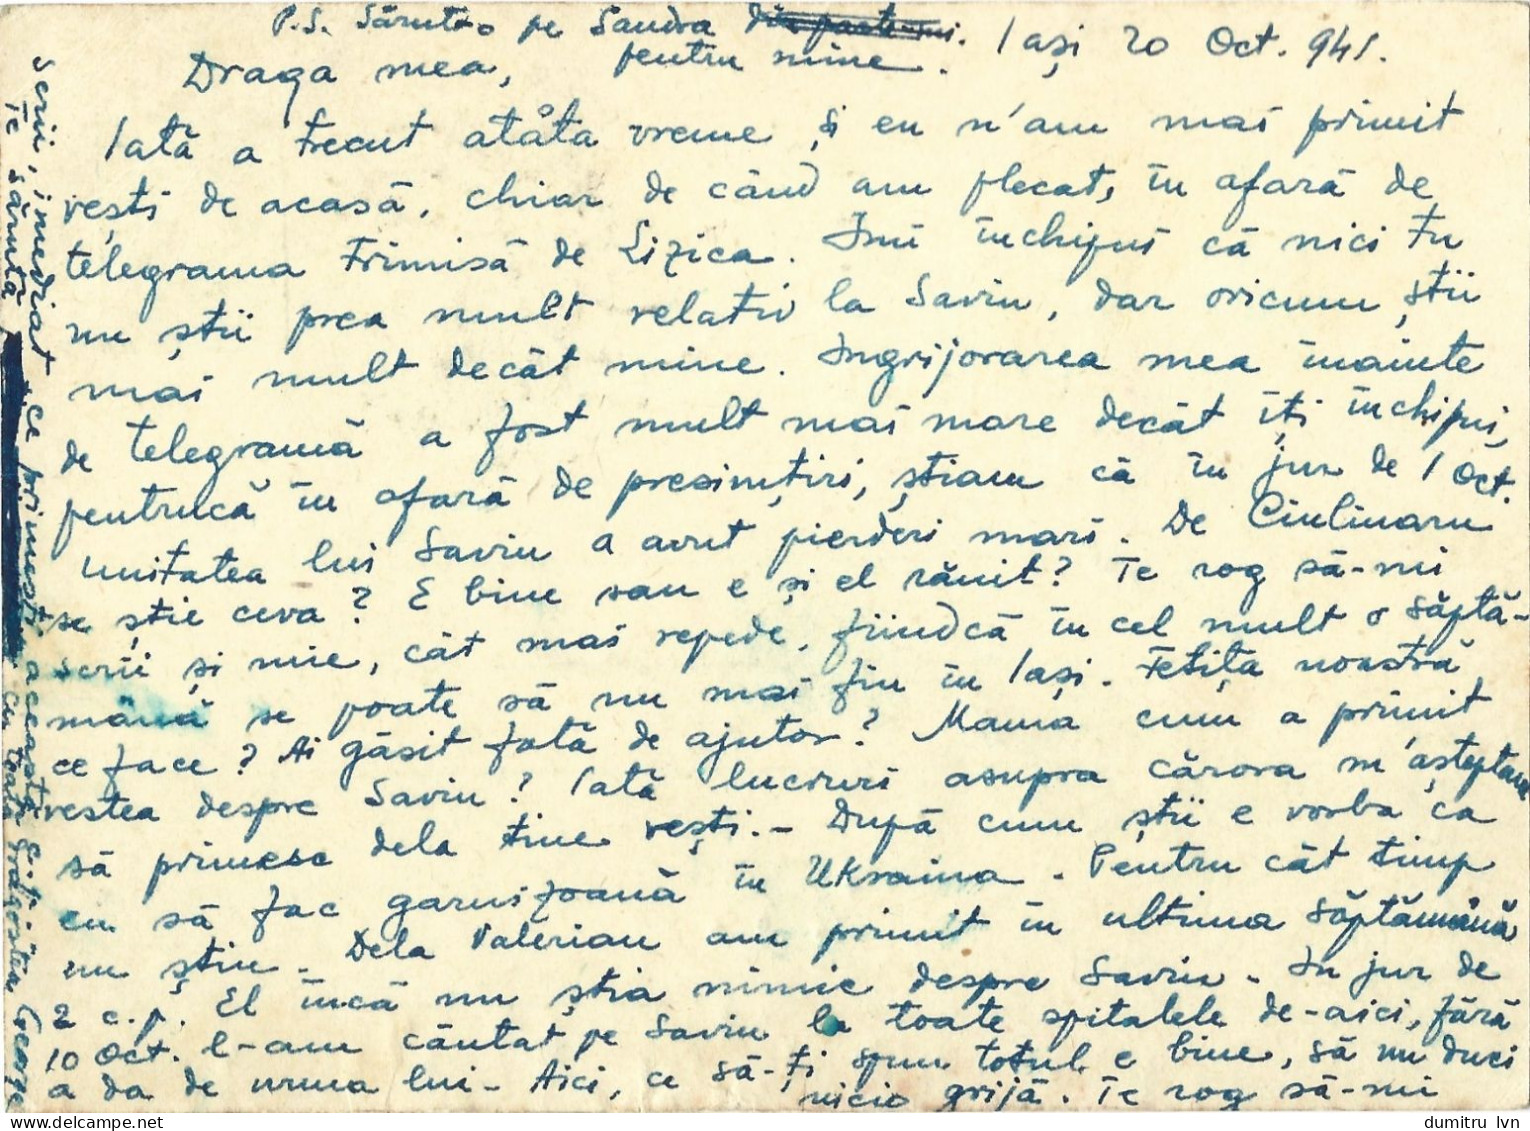 P.S. Sărut-o pe Sandra din partea-mi.
pentru mine.
Iași 20 Oct. 941.
Draga mea,
Iată a trecut atâta vreme și eu n'am mai primit
vești de acasă, chiar de când am plecat, în afară de
telegrama trimisă de Lizica. Îmi închipui că nici tu
nu știi prea mult relativ la Saviu, dar oricum știi
mai mult decât mine. Îngrijorarea mea înainte
de telegramă a fost mult mai mare decât îți închipui,
pentrucă în afară de presimțiri, știam că în jur de 1 Oct.
unitatea lui Saviu a avut pierderi mari. De Ciulinaru
se știe ceva? E bine sau e și el rănit? Te rog să-mi
scrii și mie, cât mai repede, fiindcă în cel mult o săptă-
mână se poate să nu mai fiu în Iași. Fetița noastră
ce face? Ai găsit fată de ajutor? Mama cum a primit
vestea despre Saviu? Iată lucruri asupra cărora m'așteptam
să primesc dela tine vești. – După cum știi e vorba ca
eu să fac garnizoană în Ukraina. Pentru cât timp
nu știu. Dela Valerian am primit în ultima săptămână
2 c.p. El încă nu știa nimic despre Saviu. In jur de
10 Oct. l-am căutat pe Saviu la toate spitalele de-aici, fără
a da de urma lui – Aici, ce să-ți spun totul e bine, să nu duci
nicio grijă. Te rog să-mi
scrii, imediat ce primești această c.p.
Te sărută cu toată dragostea George
dumitru lvn